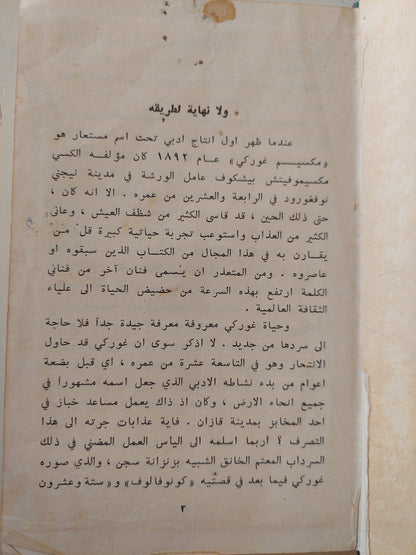 ولا نهاية لطريقه
عندما ظهر اول انتاج ادبي تحت اسم مستعار هو
«مكسيم غوركي» عام ١٨٩٢ كان مؤلفه الكسي
مكسيموفيتش بيشكوف عامل الورشة في مدينة نيجني
نوفغورود في الرابعة والعشرين من عمره . الا انه كان ،
حتى ذلك الحين ، قد قاسى الكثير من شظف العيش ، وعانى
الكثير من العذاب واستوعب تجربة حياتية كبيرة قلّ مَنْ
يقارن به في هذا المجال من الكتاب الذين سبقوه او
عاصروه . ومن المتعذر ان يُسمى فنان آخر من فناني
الكلمة ارتفع بهذه السرعة من حضيض الحياة الى علياء
الثقافة العالمية .
وحياة غوركي معروفة معرفة جيدة جداً فلا حاجة
الى سردها من جديد . لا اذكر سوى ان غوركي قد حاول
الانتحار وهو في التاسعة عشرة من عمره ، اي قبل بضعة
اعوام من بدء نشاطه الادبي الذي جعل اسمه مشهوراً في
جميع انحاء الارض ، وكان اذ ذاك يعمل مساعد خباز في
احد المخابز بمدينة قازان . فاية عذابات جرته الى هذا
التصرف ؟ اربما اسلمه الى الياس العمل المضني في ذلك
السرداب المعتم الخانق الشبيه بزنزانة سجن ، والذي صوره
غوركي فيما بعد في قصتيه «كونوفالوف» و«ستة وعشرون
٣